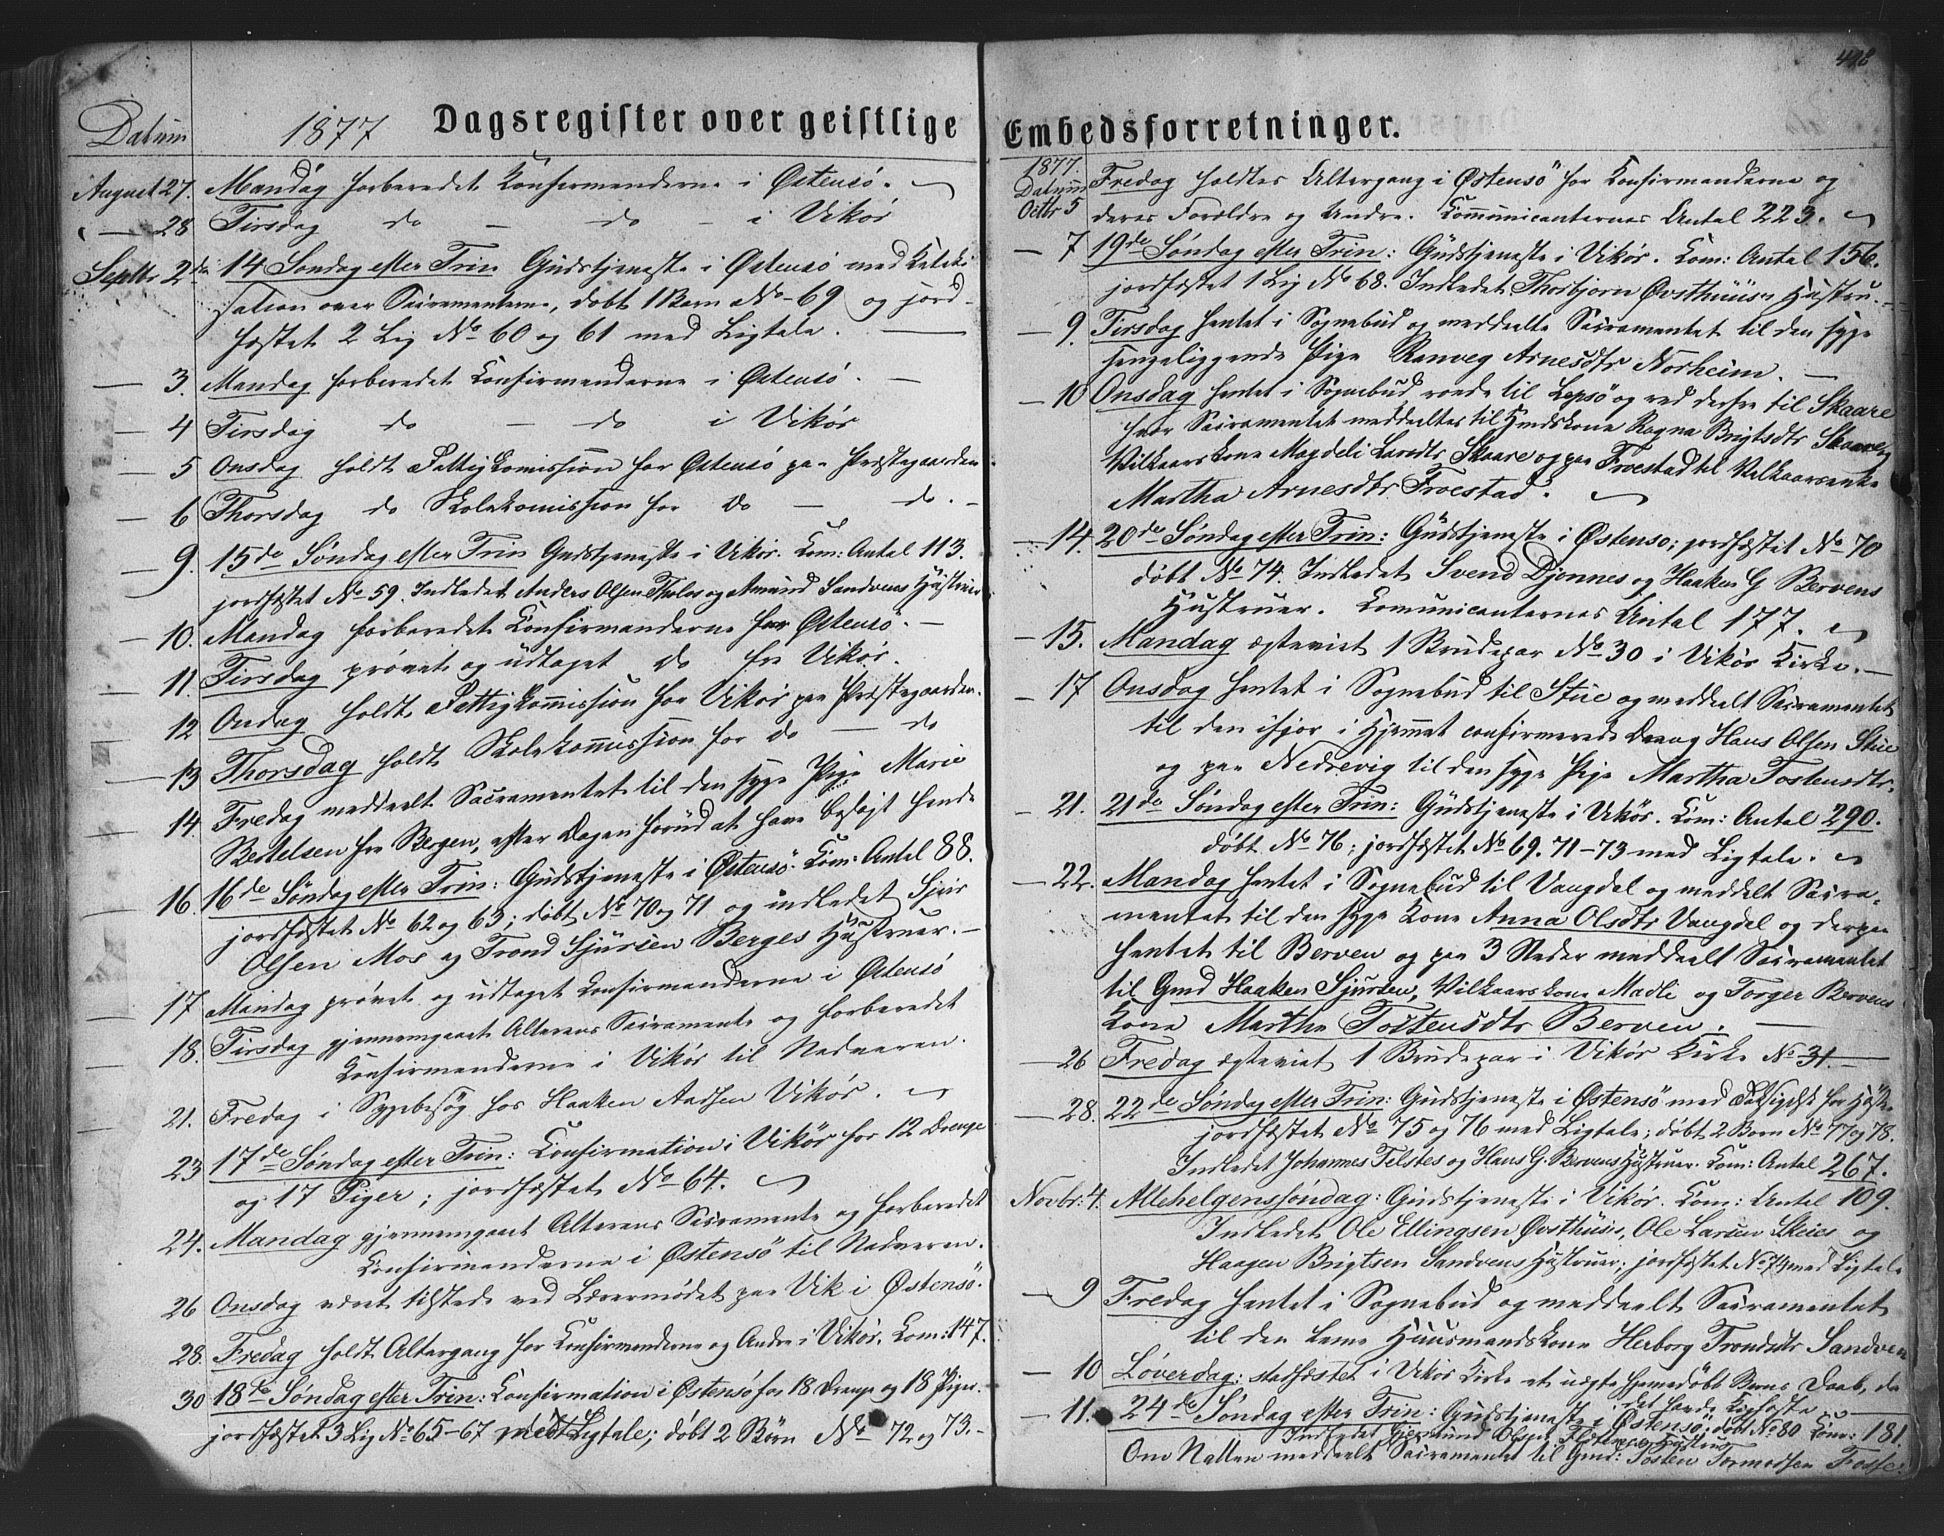 Dagsregister over geistlige
Datum 1877
August 27. Mandag forberedet Konfirmanderne i Østensö.
— 28 Tirsdag do — do — i Vikör
Septbr 2den 14 Søndag efter Trin Gudstjeneste i Østensö med Kateki-
sation over Sacramenterne, døbt 1 Barn No 69 og jord-
fæstet 2 Lig No 60 og 61 med Ligtale.
— 3. Mandag forberedet Konfirmanderne i Østensö.
— 4 Tirsdag do — do i Vikör
— 5 Onsdag holdt Fattigkomission for Østensö paa Præstegaarden
— 6 Thorsdag do Skolekomission for do — do.
— 9. 15de Søndag efter Trin Gudstjeneste i Vikör. Kom: Antal 113.
jordfæstet No 59. Indledet Anders Olsen Tholos og Amund Sandvens Hustruer
— 10. Mandag forberedet Konfirmanderne fra Østensö.
— 11. Tirsdag prøvet og udtaget do fra Vikör.
— 12 Onsdag holdt Fattigkommission for Vikör paa Præstegaarden.
— 13 Thorsdag holdt Skolekommission for do — do
14 Fredag meddeelt Sacramentet til den syge Pige Marie
Bertelsen fra Bergen, efter Dagen forud at have besøgt hende
16. 16de Søndag efter Trin: Gudstjeneste i Østensö. Kom: Antal 88.
jordfæstet No 62 og 63; døbt No 70 og 71 og indledet Sjur
Olsen Mos og Trond Sjursen Berges Hustruer.
17 Mandag prøvet og udtaget Konfirmanderne i Østensö
18. Tirsdag gjennemgaaet Alterens Sacramente og forberedet
Konfirmanderne i Vikör til Nadveren.
21. Fredag i Sygebesøg hos Haaken Aadsen Vikör.
23 17de Søndag efter Trin: Confirmation i Vikör for 12 Drenge
og 17 Piger; jordfæstet No 64.
24. Mandag gjennemgaaet Alterens Sacramente og forberedet
Konfirmanderne i Østensö til Nadveren.
26 Onsdag været tilstede ved Lærermødet paa Vik i Østensö.
28 Fredag holdt Altergang for Konfirmanderne og Andre i Vikör. Kom: 147.
30 18de Søndag efter Trin: Confirmation i Østensö for 18 Drenge og 18 Piger.
jordfæstet 3 Lig No 65-67 med Ligtale; døbt 2 Børn No 72 og 73.
418
Embedsforretninger.
1877.
Datum
Octbr 5 Fredag holdtes Altergang i Østensö for Konfirmanderne og
deres Forældre og Andre. Communicanternes Antal 223.
— 7 19de Søndag efter Trin: Gudstjeneste i Vikör. Kom: Antal 156.
jordfæstet 1 Lig No 68. Indledet Thorbjørn Øvsthuusn Hustru.
— 9. Tirsdag hentet i Sognebud og meddeelte Sacramentet til den syge
sengeliggende Pige Ranveg Arnesdtr Norheim.
— 10 Onsdag hentet i Sognebud til Lepsö og ved derfra til Skaare
hvor Sacramentet meddeeltes til Husdskone Ragna Brigtsdtr Skaare,
Vilkaarskone Magdeli Larsdtr Skaare og paa Froestad til Vilkaarsenke
Martha Arnesdtr Froestad.
— 14. 20de Søndag efter Trin: Gudstjeneste i Østensö; jordfæstet No 70
døbt No 74. Indledet Svend Djonnes og Haaken G Bervens
Hustruer. Communicanternes Antal 177.
— 15. Mandag ægteviet 1 Brudepar No 30 i Vikör Kirke.
— 17 Onsdag hentet i Sognebud til Stue og meddeelt Sacramentet
til den ifjor i Hjemmet confirmerede Dreng Hans Olsen Stue
og paa Nedrevig til den syge Pige Martha Tostensdtr.
— 21. 21de Søndag efter Trin: Gudstjeneste i Vikör. Kom: Antal 290.
døbt No 76; jordfæstet No 69. 71-73 med Ligtale.
— 22. Mandag hentet i Sognebud til Vangdal og meddelt Sacra-
mentet til den syge Kone Anna Olsdtr Vangdal og derpaa
hentet til Berven og paa 3 Steder meddeelt Sacramentet
til Gmd Haaken Sjursen, Vilkaarskone Madli og Torger Bervens
Kone Martha Tostensdtr Berven.
— 26 Fredag ægteviet 1 Brudepar i Vikör Kirke No 31.
— 28. 22de Søndag efter Trin: Gudstjeneste i Østensö med Taksigelse for Høsten
jordfæstet No 75 og 76 med Ligtale; døbt 2 Børn No 77 og 78.
Indledet Johannes Tilstes og Hans G. Bervens Hustruer. Kom: Antal 267.
Novbr: 4. Allehelgenssøndag: Gudstjeneste i Vikör. Kom: Antal 109.
Indledet Ole Ellingsen Øvsthus, Ole Larsen Skeies og
Haagen Brigtsen Sandvens Hustruer; jordfæstet No 74 med Ligtale
— 9 Fredag hentet i Sognebud og meddeelt Sacramentet
til den lamme Huusmandskone Herborg Trondsdtr Sandven
— 10 Løverdag: stadfæstet i Vikör Kirke et uægte hjemedøbt Barns Daab, da
det havde Ligfærd
— 11. 24de Søndag efter Trin: Gudstjeneste i Østensö; døbt No 80 Kom: 181.
Indledet Gjermund Olsen Hustru
Om Natten meddeelt Sacramentet til Gmd: Tosten Tormodsen Fosse.